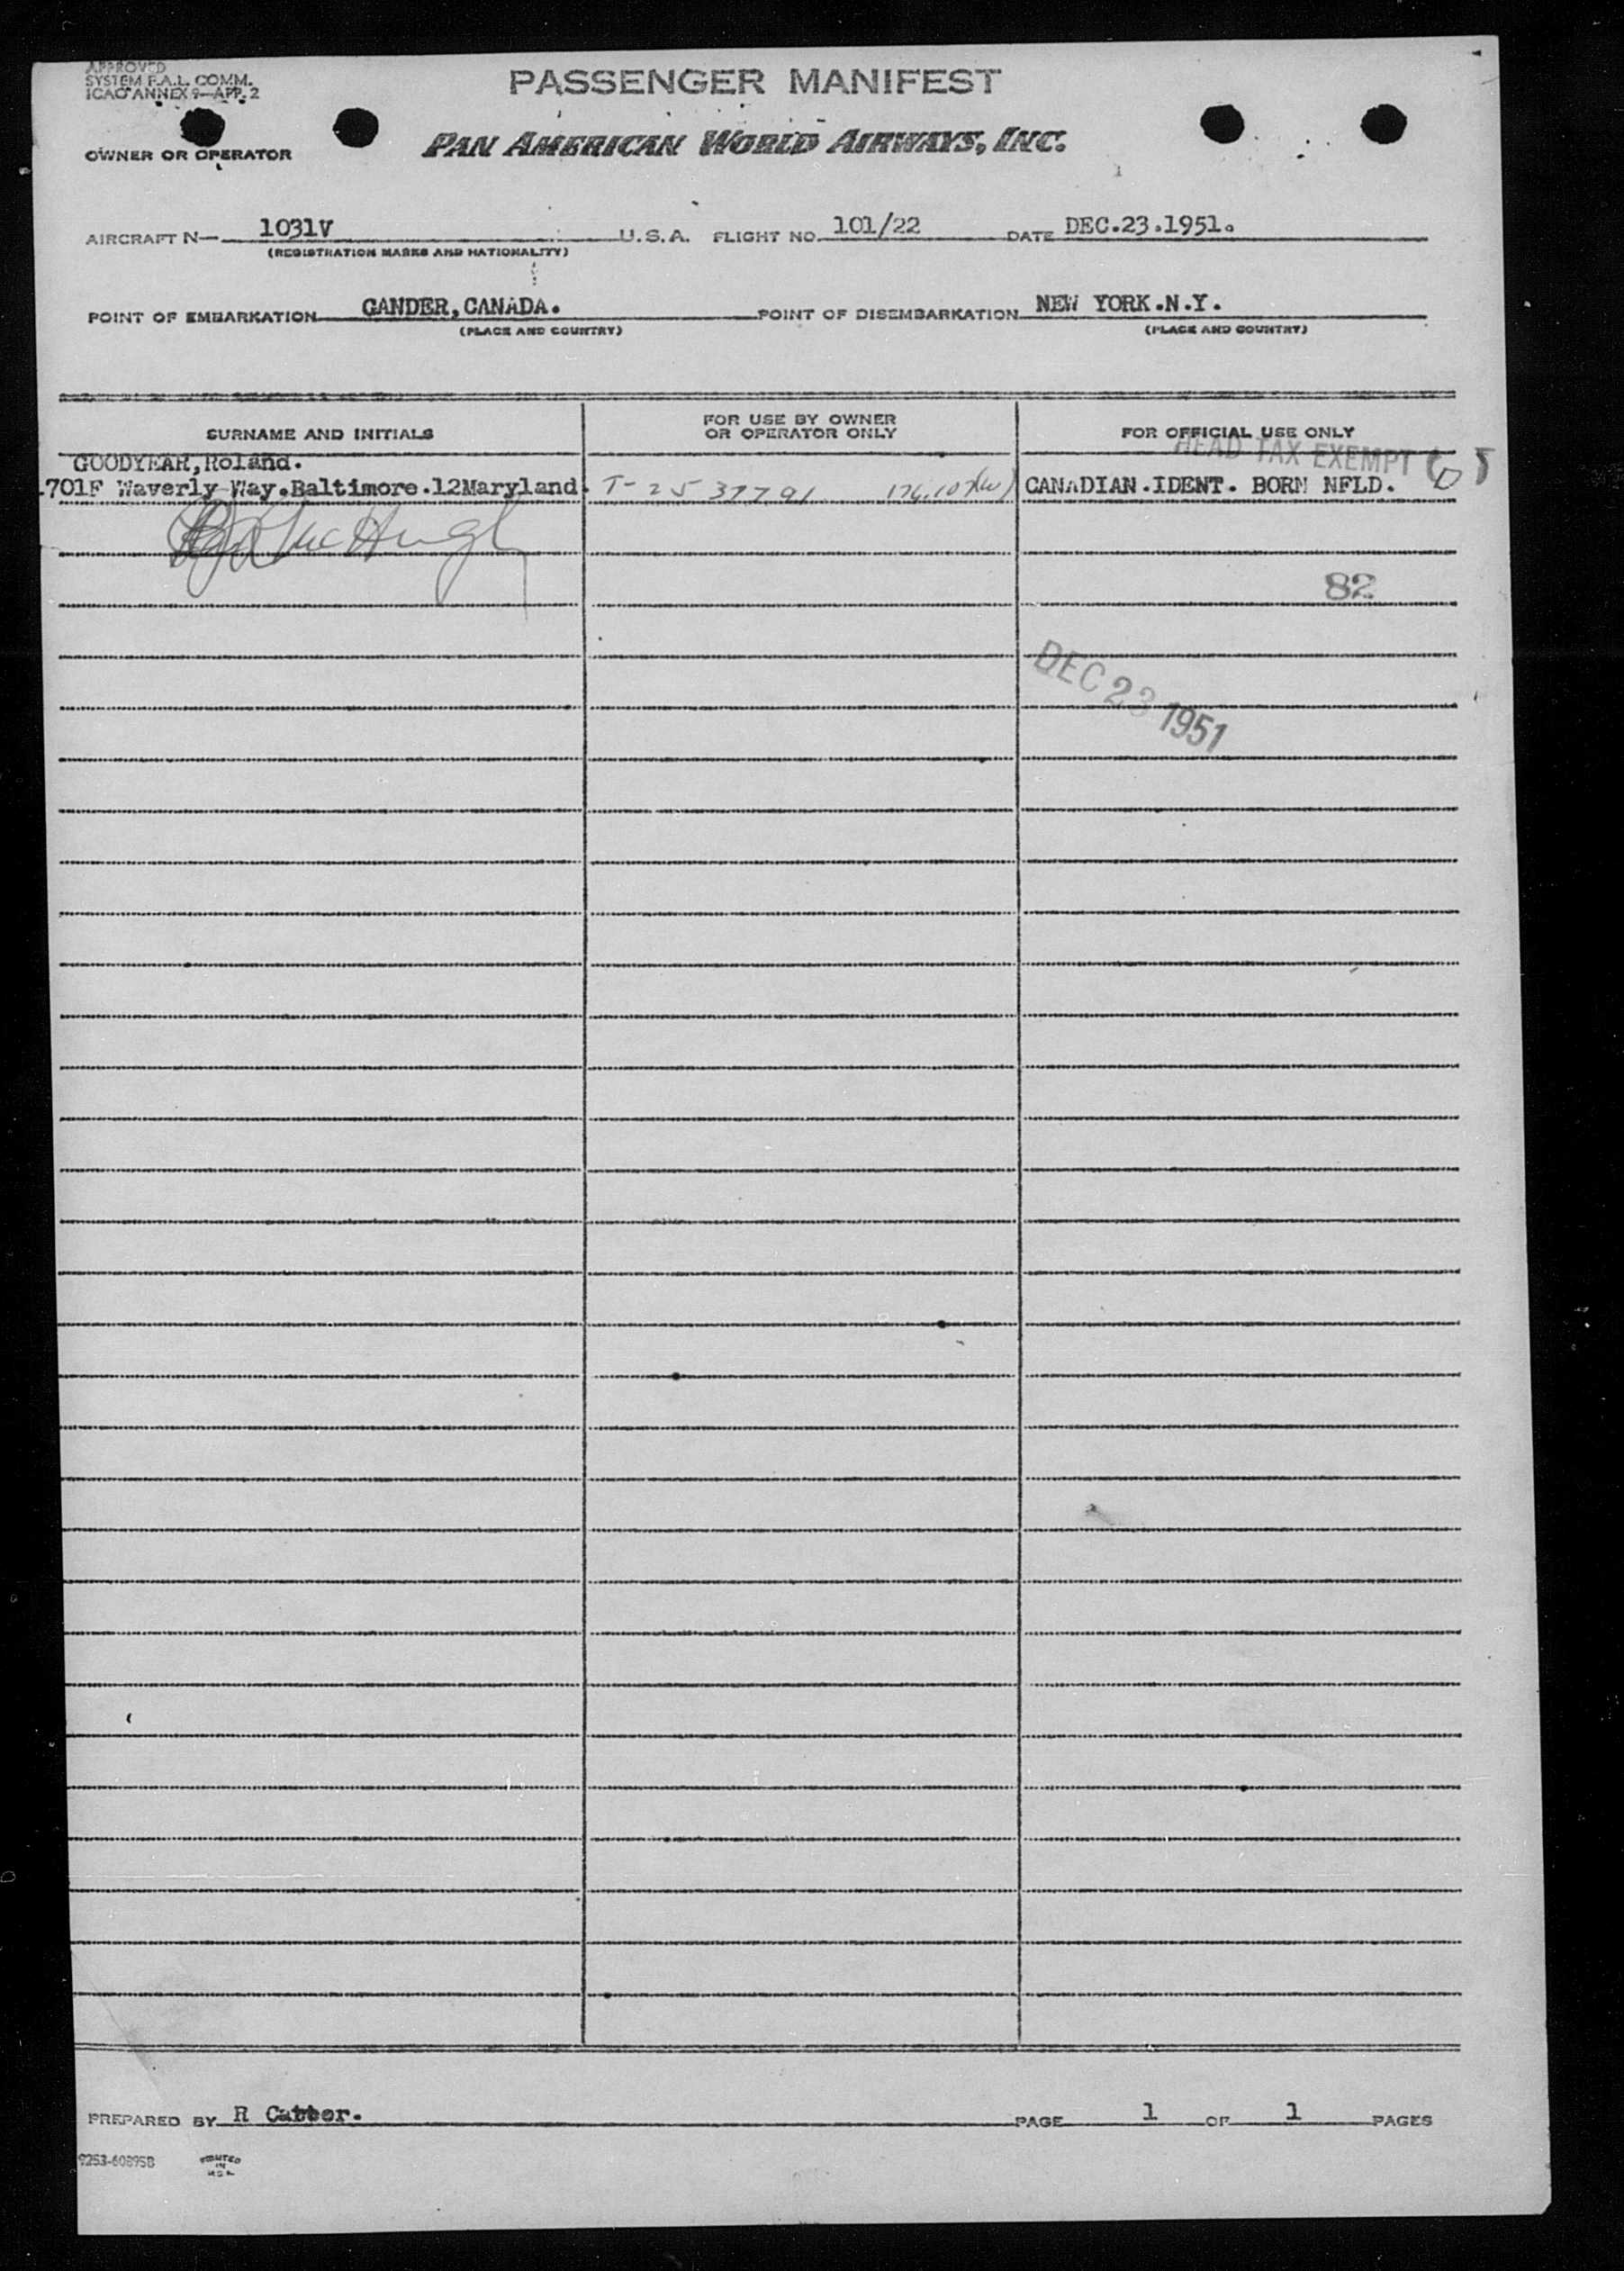 APPROVED
SYSTEM F.A.L. COMM.
ICAO ANNEX 9—APP. 2
PASSENGER MANIFEST
OWNER OR OPERATOR
PAN AMERICAN WORLD AIRWAYS, INC.
AIRCRAFT N— 1031V U.S.A. FLIGHT NO. 101/22 DATE DEC.23.1951.
(REGISTRATION MARKS AND NATIONALITY)
POINT OF EMBARKATION GANDER,CANADA. POINT OF DISEMBARKATION NEW YORK.N.Y.
(PLACE AND COUNTRY) (PLACE AND COUNTRY)
SURNAME AND INITIALS FOR USE BY OWNER OR OPERATOR ONLY FOR OFFICIAL USE ONLY
HEAD TAX EXEMPT
GOODYEAR,Roland.
701F Waverly Way.Baltimore.12Maryland. T-2537791 CANADIAN.IDENT. BORN NFLD.
82
DEC 23 1951
PREPARED BY R PAGE 1 OF 1 PAGES
9253-60895B PRINTED IN U.S.A.